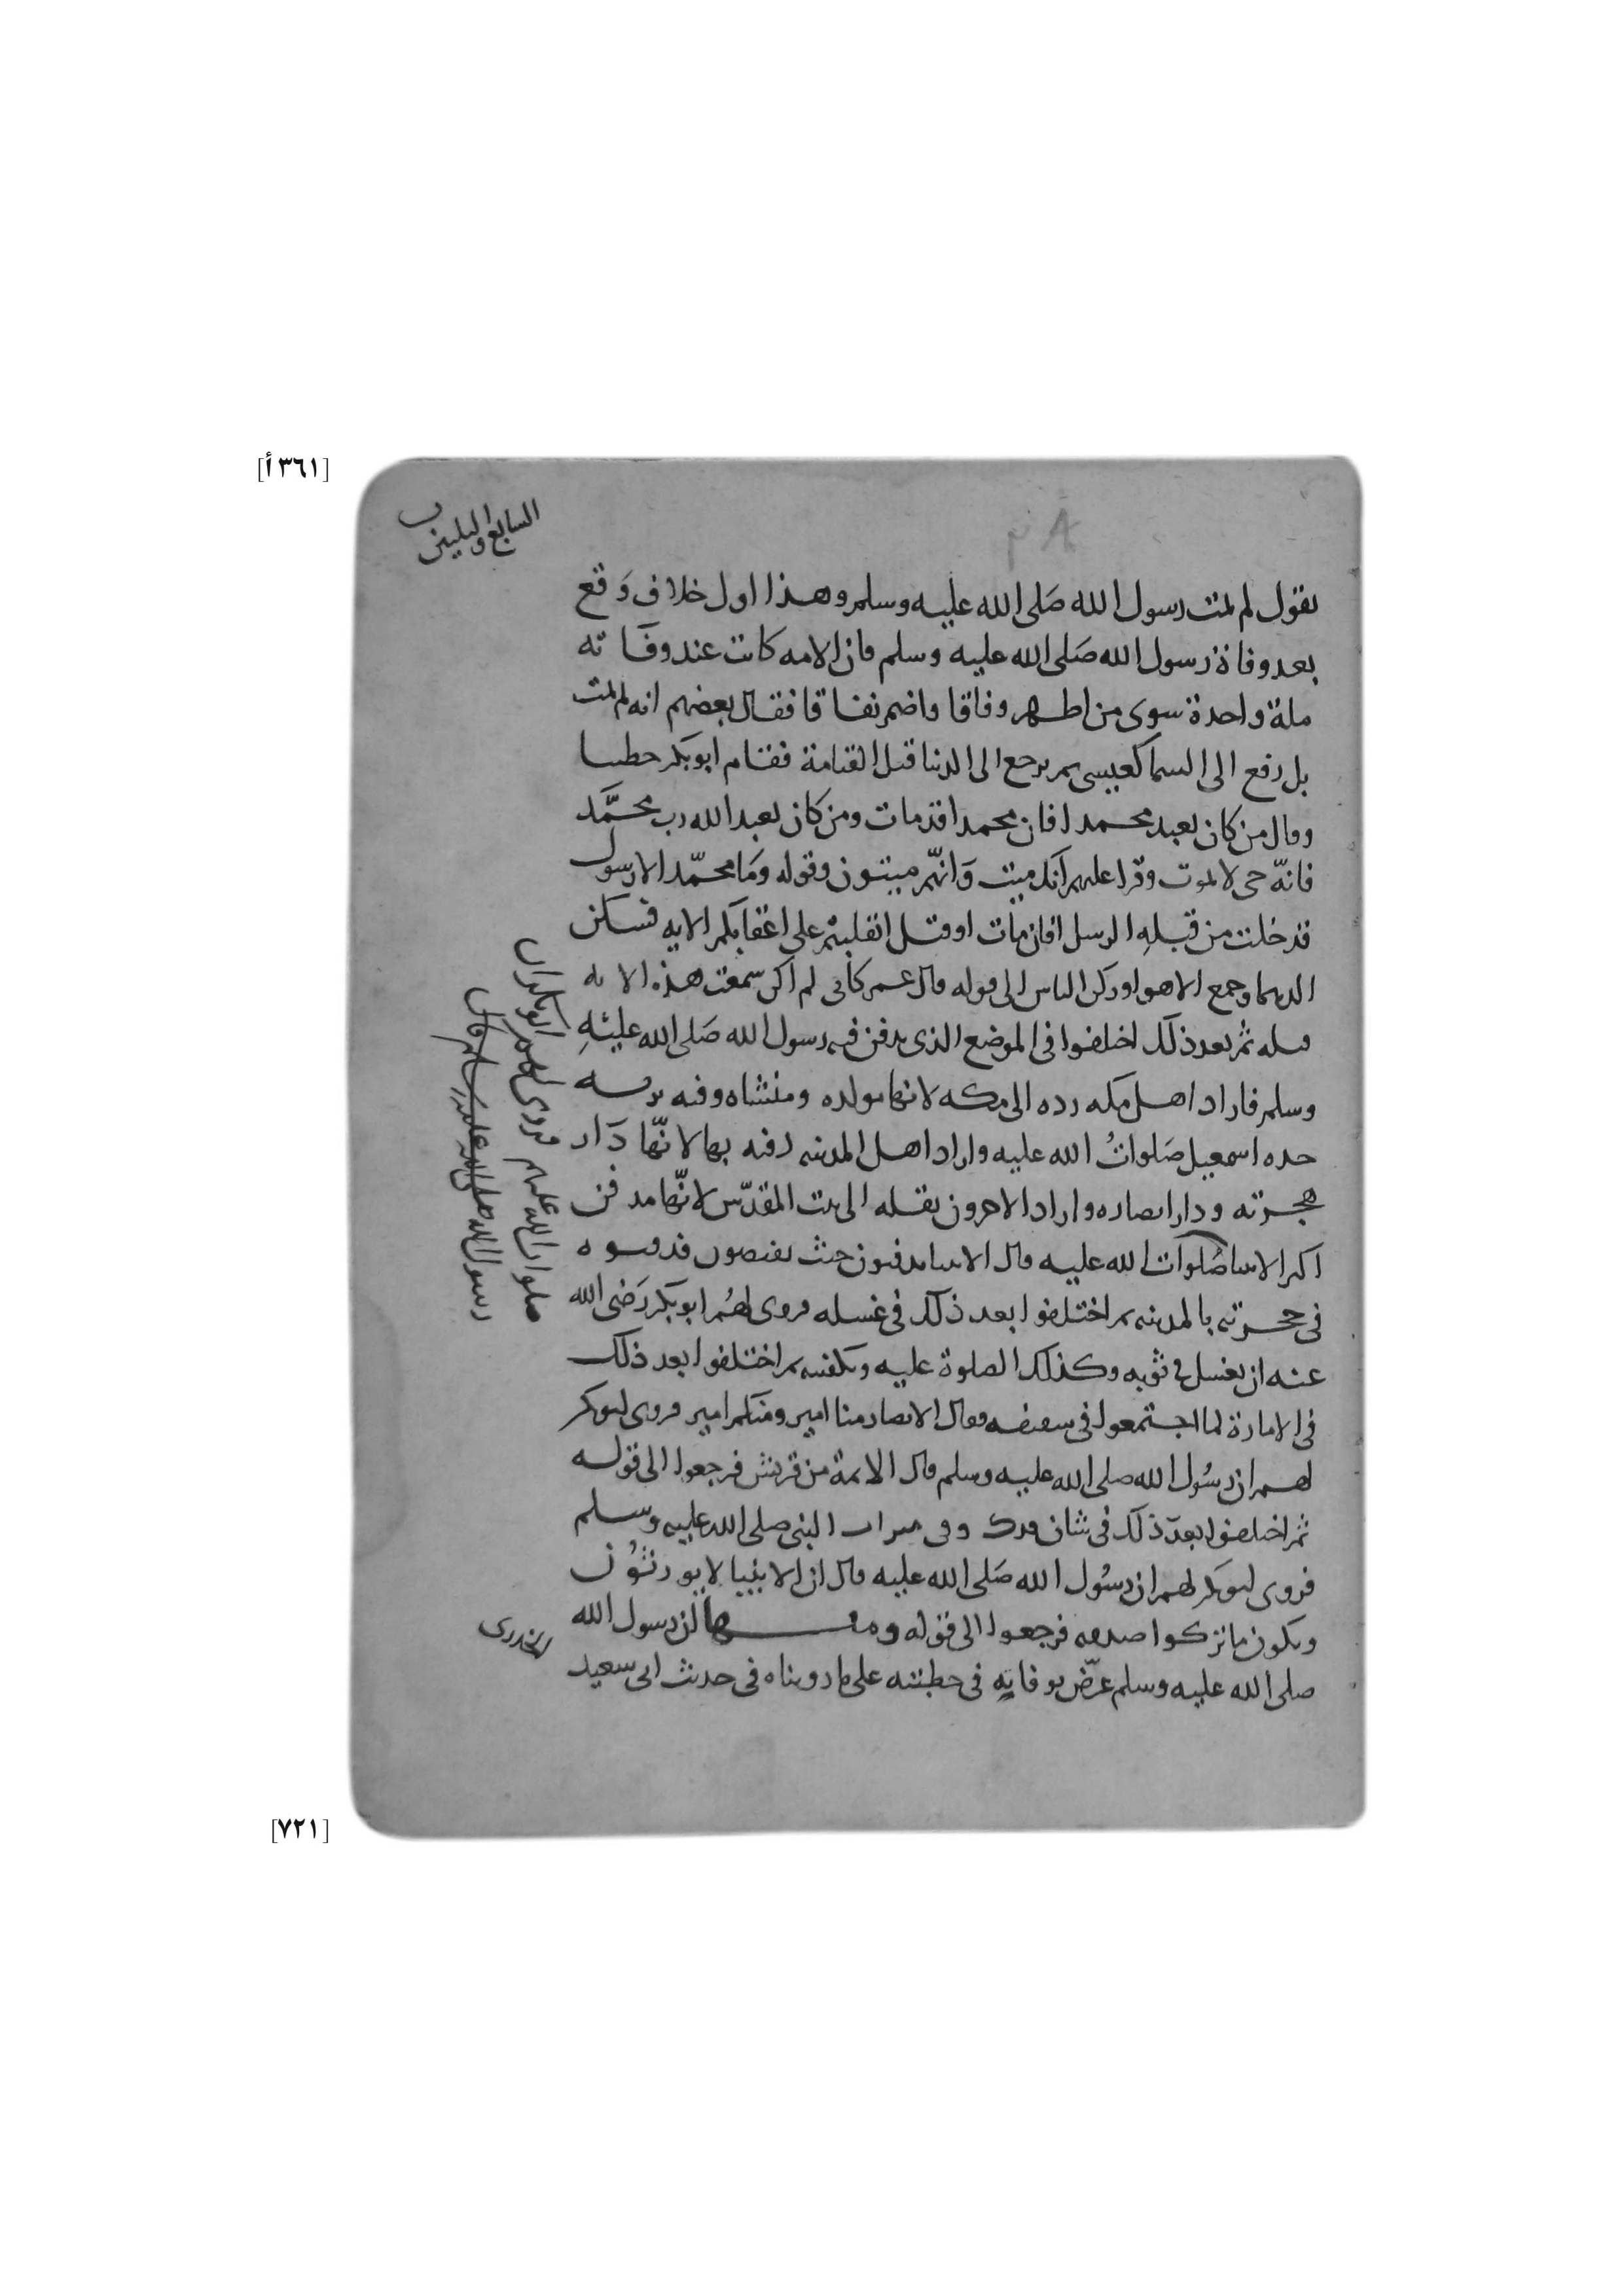 [٣٦١ أ]
السابع والثلثون
يقول لم يمت رسول الله صَلى الله عليه وسلم وهذا اول خلاف وَقع
بعد وفاة رسول الله صَلى الله عليه وسلم فان الامه كانت عند وفَاته
ملة واحدة سوى من اظهر وفاقا واضمر نفاقا فقال بعضهم انه لم يمت
بل رفع الى السما كعيسى ثم يرجع الى الدنيا قبل القيامة فقام ابو بكر خطيبا
وقال من كان يعبد محمدا فان محمدا قد مات ومن كان يعبد الله رب محمَّد
فانّه حى لا يموت وقرا عليهم انك ميت وَانهّم ميتون وقوله وَما محمّد الا رسول
قد خلت من قبلهِ الرسل افان مات او قتل انقلبتم على اعقابكم الايه فسكن
الدهما وجمع الاهوا وركن الناس الى قوله قال عمر كأنى لم اكن سمعت هذه الايه
قبله ثم بعد ذلك اختلفوا فى الموضع الذى يدفن فيه رسول الله صَلى الله عليْهِ
وسلم فاراد اهل مكه رده الى مكه لانها مولده ومنشاه وفيه تربه
جده اسمعيل صَلواتُ الله عليه واراد اهل المدينه دفنه بها لانّها دَار
هجرته ودار انصاره واراد الاخرون نقله الى بيت المقدّس لانّها مدفن
اكثر الانبيا صَلوات الله عليه قال الانبيا يدفنون حيث يقبضون فدفنوه
صلوات الله عليهم فروى لهم ابو بكر ان
رسول الله صلى الله عليه وسلم قال
فى حجرته بالمدينه ثم اختلفوا بعد ذلك فى غسله فروى لهُم ابو بكر رَضى الله
عنه ان يغسل فى ثوبه وكذلك الصلوة عليه وتكفينه ثم اختلفوا بعد ذلك
فى الامارة لما اجتمعوا فى سقيفه وقال الانصار منا امير ومنكم امير فروى ابو بكر
لهم ان رسُول الله صلى الله عليه وسلم قال الائمة من قريش فرجعوا الى قوله
ثم اختلفوا بعد ذلك فى شان فدك وفى ميراث النبى صلى الله عليه وسلم
فروى ابو بكر لهم ان رسُول الله صَلى الله عليه قال ان الانبيا لا يورثوُن
ويكون ما تركوا صدقه فرجعوا الى قوله ومنها ان رسول الله
صلى الله عليه وسلم عرّض بوفاته فى خطبته على ما رويناه فى حديث ابى سعيد
الخدرى
[٧٢١]